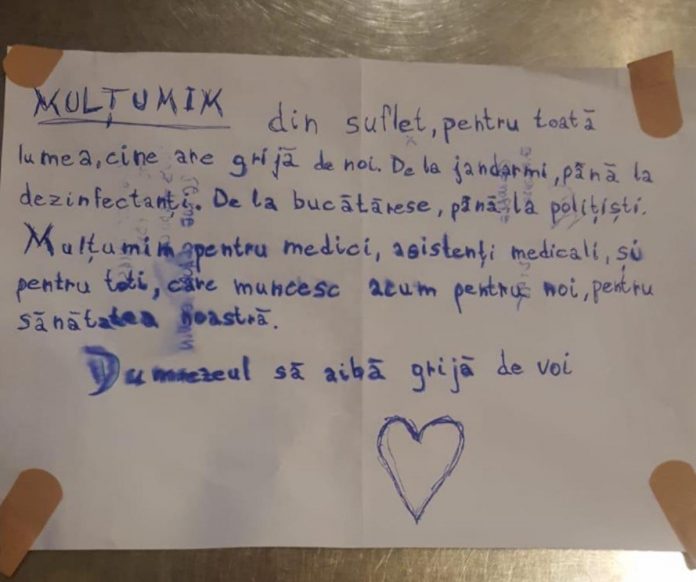 MULȚUMIM din suflet, pentru toată
lumea, cine are grijă de noi. De la jandarmi, până la
dezinfectanți. De la bucătărese, până la polițiști.
Mulțumim pentru medici, asistenți medicali, și
pentru toti, care muncesc acum pentru noi, pentru
sănătatea noastră.
Dumnezeul să aibă grijă de voi